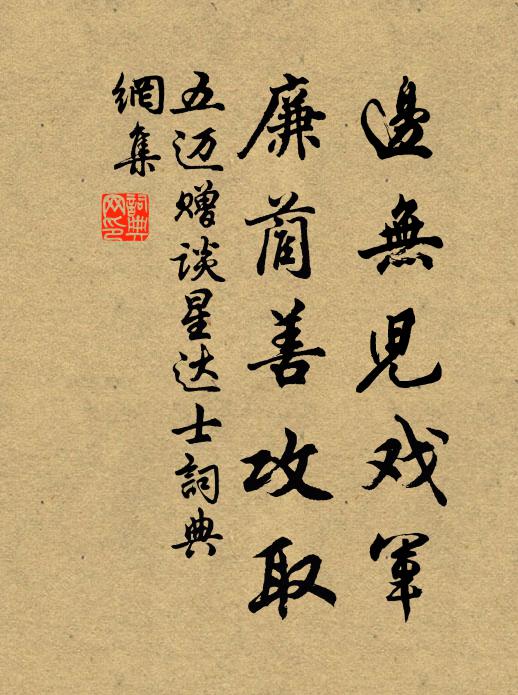 邊無児戏軍
廉藺善攻取
五迈赠谈星达士詞典
網集
詞典网印